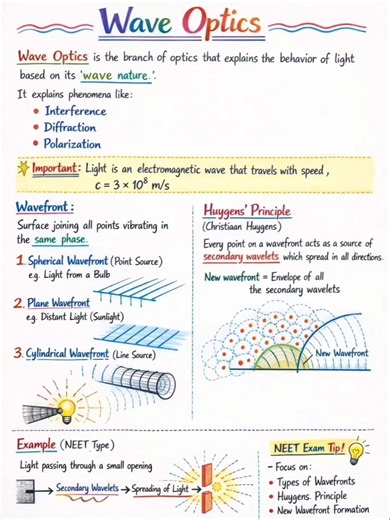 Wave Optics
Wave Optics is the branch of optics that explains the behavior of light
based on its 'wave nature.'.
It explains phenomena like:
• Interference
• Diffraction
• Polarization
Important: Light is an electromagnetic wave that travels with speed,
c = 3 × 10⁸ m/s
Wavefront:
Surface joining all points vibrating in
the same phase.
1. Spherical Wavefront (Point Source)
e.g. Light from a Bulb
2. Plane Wavefront
e.g. Distant Light (Sunlight)
3. Cylindrical Wavefront (Line Source)
Huygens' Principle
(Christiaan Huygens)
Every point on a wavefront acts as a source of
secondary wavelets which spread in all directions.
New wavefront = Envelope of all
the secondary wavelets
New Wavefront
Example (NEET Type)
Light passing through a small opening
→ Secondary Wavelets → Spreading of Light →
NEET Exam Tip!
- Focus on:
• Types of Wavefronts
• Huygens. Principle
• New Wavefront Formation